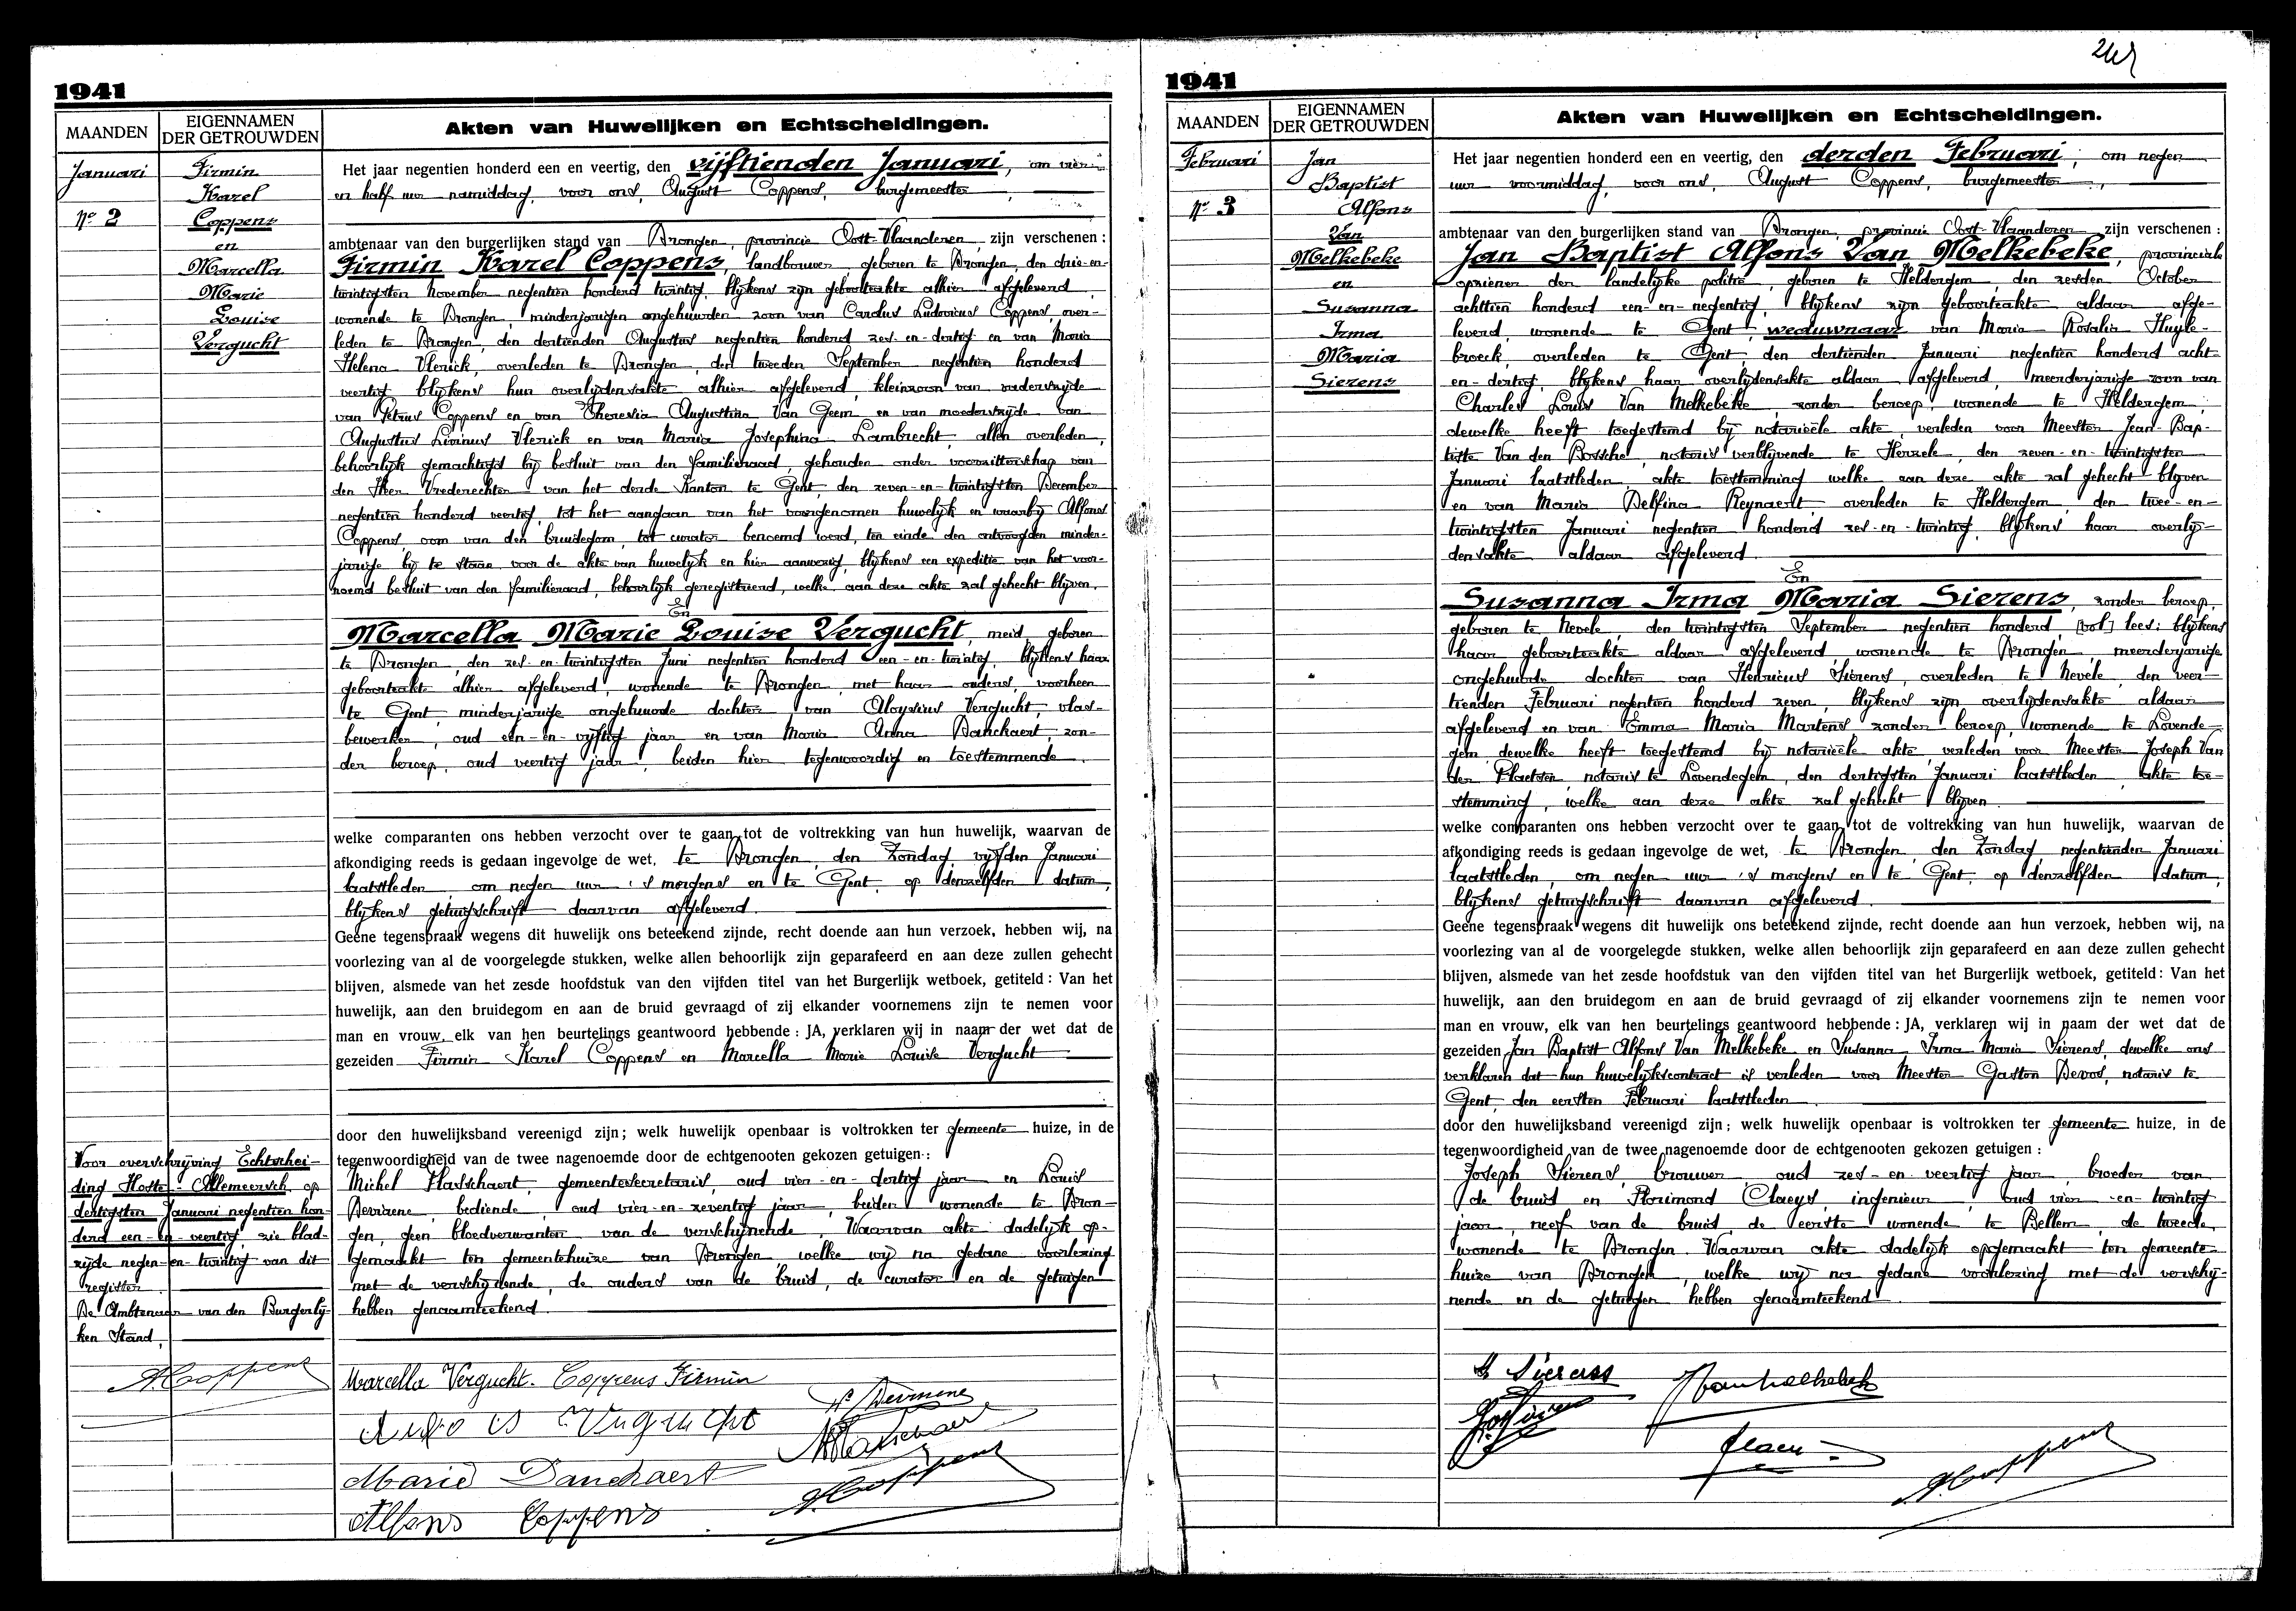 248
1941
MAANDEN
EIGENNAMEN
DER GETROUWDEN
Akten van Huwelijken en Echtscheidingen.
Januari
Nr 2
Firmin
Karel
Coppens
en
Marcella
Marie
Louise
Vergucht
Het jaar negentien honderd een en veertig, den vijftienden Januari, om vier
en half uur namiddag, voor ons, August Coppens, burgemeester,
ambtenaar van den burgerlijken stand van Drongen, provincie Oost-Vlaanderen, zijn verschenen:
Firmin Karel Coppens, landbouwer, geboren te Drongen, den drie-en-
twintigsten November negentien honderd twintig, blijkens zijn geboorteakte alhier afgeleverd,
wonende te Drongen, minderjarigen ongehuwden zoon van Carolus Ludovicus Coppens, over-
leden te Drongen, den dertienden Augustus negentien honderd zes-en-dertig en van Maria
Helena Vlerick, overleden te Drongen, den tweeden September negentien honderd
veertig, blijkens hun overlijdensakte alhier afgeleverd, kleinzoon van vaderszijde
van Petrus Coppens en van Theresia Augustina Van Geem en van moederszijde van
Augustus Livinus Vlerick en van Maria Josephina Lambrecht, allen overleden,
behoorlijk gemachtigd bij besluit van den familieraad, gehouden onder voorzitterschap van
den Heer Vrederechter van het derde Kanton te Gent, den zeven-en-twintigsten December
negentien honderd veertig, tot het aangaan van het voorgenomen huwelijk en waarbij Alfons
Coppens, oom van den bruidegom, tot curator benoemd werd, ten einde den ontvoogden minder-
jarige bij te staan voor de akte van huwelijk en hier aanwezig, blijkens een expeditie van het voor-
noemd besluit van den familieraad, behoorlijk geregistreerd, welke aan deze akte zal gehecht blijven.
En
Marcella Marie Louise Vergucht, meid, geboren
te Drongen, den zes-en-twintigsten Juni negentien honderd een-en-twintig, blijkens haar
geboorteakte alhier afgeleverd, wonende te Drongen, met haar ouders, voorheen
te Gent, minderjarige ongehuwde dochter van Aloysius Vergucht, vlas-
bewerker, oud een-en-vijftig jaar en van Maria Anna Danckaert, zon-
der beroep, oud veertig jaar, beiden hier tegenwoordig en toestemmende.
welke comparanten ons hebben verzocht over te gaan tot de voltrekking van hun huwelijk, waarvan de
afkondiging reeds is gedaan ingevolge de wet, te Drongen, den Zondag, vijfden Januari
laatstleden, om negen uur 's morgens en te Gent, op denzelfden datum,
blijkens getuigschrift daarvan afgeleverd.
Geene tegenspraak wegens dit huwelijk ons beteekend zijnde, recht doende aan hun verzoek, hebben wij, na
voorlezing van al de voorgelegde stukken, welke allen behoorlijk zijn geparafeerd en aan deze zullen gehecht
blijven, alsmede van het zesde hoofdstuk van den vijfden titel van het Burgerlijk wetboek, getiteld: Van het
huwelijk, aan den bruidegom en aan de bruid gevraagd of zij elkander voornemens zijn te nemen voor
man en vrouw, elk van hen beurtelings geantwoord hebbende: JA, verklaren wij in naam der wet dat de
gezeiden Firmin Karel Coppens en Marcella Marie Louise Vergucht
door den huwelijksband vereenigd zijn; welk huwelijk openbaar is voltrokken ter gemeente huize, in de
tegenwoordigheid van de twee nagenoemde door de echtgenooten gekozen getuigen:
Michel Hasschaert, gemeentesecretaris, oud vier-en-dertig jaar en Louis
Devriene, bediende, oud vier-en-zeventig jaar, beiden wonende te Dron-
gen, geen bloedverwanten van de verschijnende. Waarvan akte dadelijk op-
gemaakt ten gemeentehuize van Drongen, welke wij na gedane voorlezing
met de verschijnende, de ouders van de bruid, de curator en de getuigen
hebben genaamteekend.
Voor overschrijving Echtschei-
ding Hoste-Allemeersch, op
dertigsten Januari negentien hon-
derd een-en-veertig, zie blad-
zijde negen-en-twintig van dit
register.
De Ambtenaar van den Burgerlij-
ken Stand,
A. Coppens
Marcella Vergucht. Coppens Firmin
Vergucht
Marie Danckaert
Alfons Coppens
A. Coppens
1941
MAANDEN
EIGENNAMEN
DER GETROUWDEN
Akten van Huwelijken en Echtscheidingen.
Februari
Nr 3
Jan
Baptist
Alfons
Van
Melkebeke
en
Susanna
Irma
Maria
Sierens
Het jaar negentien honderd een en veertig, den derden Februari, om negen
uur voormiddag, voor ons, August Coppens, burgemeester,
ambtenaar van den burgerlijken stand van Drongen, provincie Oost-Vlaanderen zijn verschenen:
Jan Baptist Alfons Van Melkebeke, provinciale
opziener der landelijke politie, geboren te Heldergem, den zesden October
achttien honderd een-en-negentig, blijkens zijn geboorteakte aldaar afge-
leverd, wonende te Gent, weduwnaar van Maria Rosalia Huyle-
broeck, overleden te Gent, den dertienden Januari negentien honderd acht-
en-dertig, blijkens haar overlijdensakte aldaar afgeleverd, meerderjarige zoon van
Charles Louis Van Melkebeke, zonder beroep, wonende te Heldergem,
dewelke heeft toegestemd bij notarieële akte, verleden voor Meester Jean-Bap-
tiste Van den Bossche, notaris verblijvende te Herzele, den zeven-en-twintigsten
Januari laatstleden, akte toestemming welke aan deze akte zal gehecht blijven
en van Maria Delfina Reynaert, overleden te Heldergem, den twee-en-
twintigsten Januari negentien honderd zes-en-twintig, blijkens haar overlij-
densakte aldaar afgeleverd.
En
Susanna Irma Maria Sierens, zonder beroep,
geboren te Nevele, den twintigsten September negentien honderd, [vol] lees: blijkens
haar geboorteakte aldaar afgeleverd, wonende te Drongen, meerderjarige
ongehuwde dochter van Henricus Sierens, overleden te Nevele, den veer-
tienden Februari negentien honderd zeven, blijkens zijn overlijdensakte aldaar
afgeleverd en van Emma Maria Martens, zonder beroep, wonende te Lovende-
gem, dewelke heeft toegestemd bij notarieële akte, verleden voor Meester Joseph Van
der Plaetsen, notaris te Lovendegem, den dertigsten Januari laatstleden, akte toe-
stemming, welke aan deze akte zal gehecht blijven.
welke comparanten ons hebben verzocht over te gaan tot de voltrekking van hun huwelijk, waarvan de
afkondiging reeds is gedaan ingevolge de wet, te Drongen, den Zondag negentienden Januari
laatstleden, om negen uur 's morgens en te Gent, op denzelfden datum,
blijkens getuigschrift daarvan afgeleverd.
Geene tegenspraak wegens dit huwelijk ons beteekend zijnde, recht doende aan hun verzoek, hebben wij, na
voorlezing van al de voorgelegde stukken, welke allen behoorlijk zijn geparafeerd en aan deze zullen gehecht
blijven, alsmede van het zesde hoofdstuk van den vijfden titel van het Burgerlijk wetboek, getiteld: Van het
huwelijk, aan den bruidegom en aan de bruid gevraagd of zij elkander voornemens zijn te nemen voor
man en vrouw, elk van hen beurtelings geantwoord hebbende: JA, verklaren wij in naam der wet dat de
gezeiden Jan Baptist Alfons Van Melkebeke en Susanna Irma Maria Sierens, dewelke ons
verklaren dat hun huwelijkscontract is verleden voor Meester Gaston Devos, notaris te
Gent, den eersten Februari laatstleden
door den huwelijksband vereenigd zijn; welk huwelijk openbaar is voltrokken ter gemeente huize, in de
tegenwoordigheid van de twee nagenoemde door de echtgenooten gekozen getuigen:
Joseph Sierens, brouwer, oud zes-en-veertig jaar, broeder van
de bruid en Florimond Claeys, ingenieur, oud vier-en-twintig
jaar, neef van de bruid, de eerste wonende te Bellem, de tweede,
wonende te Drongen. Waarvan akte dadelijk opgemaakt ten gemeente-
huize van Drongen, welke wij na gedane voorlezing met de verschij-
nende en de getuigen hebben genaamteekend
S. Sierens
A. Coppens